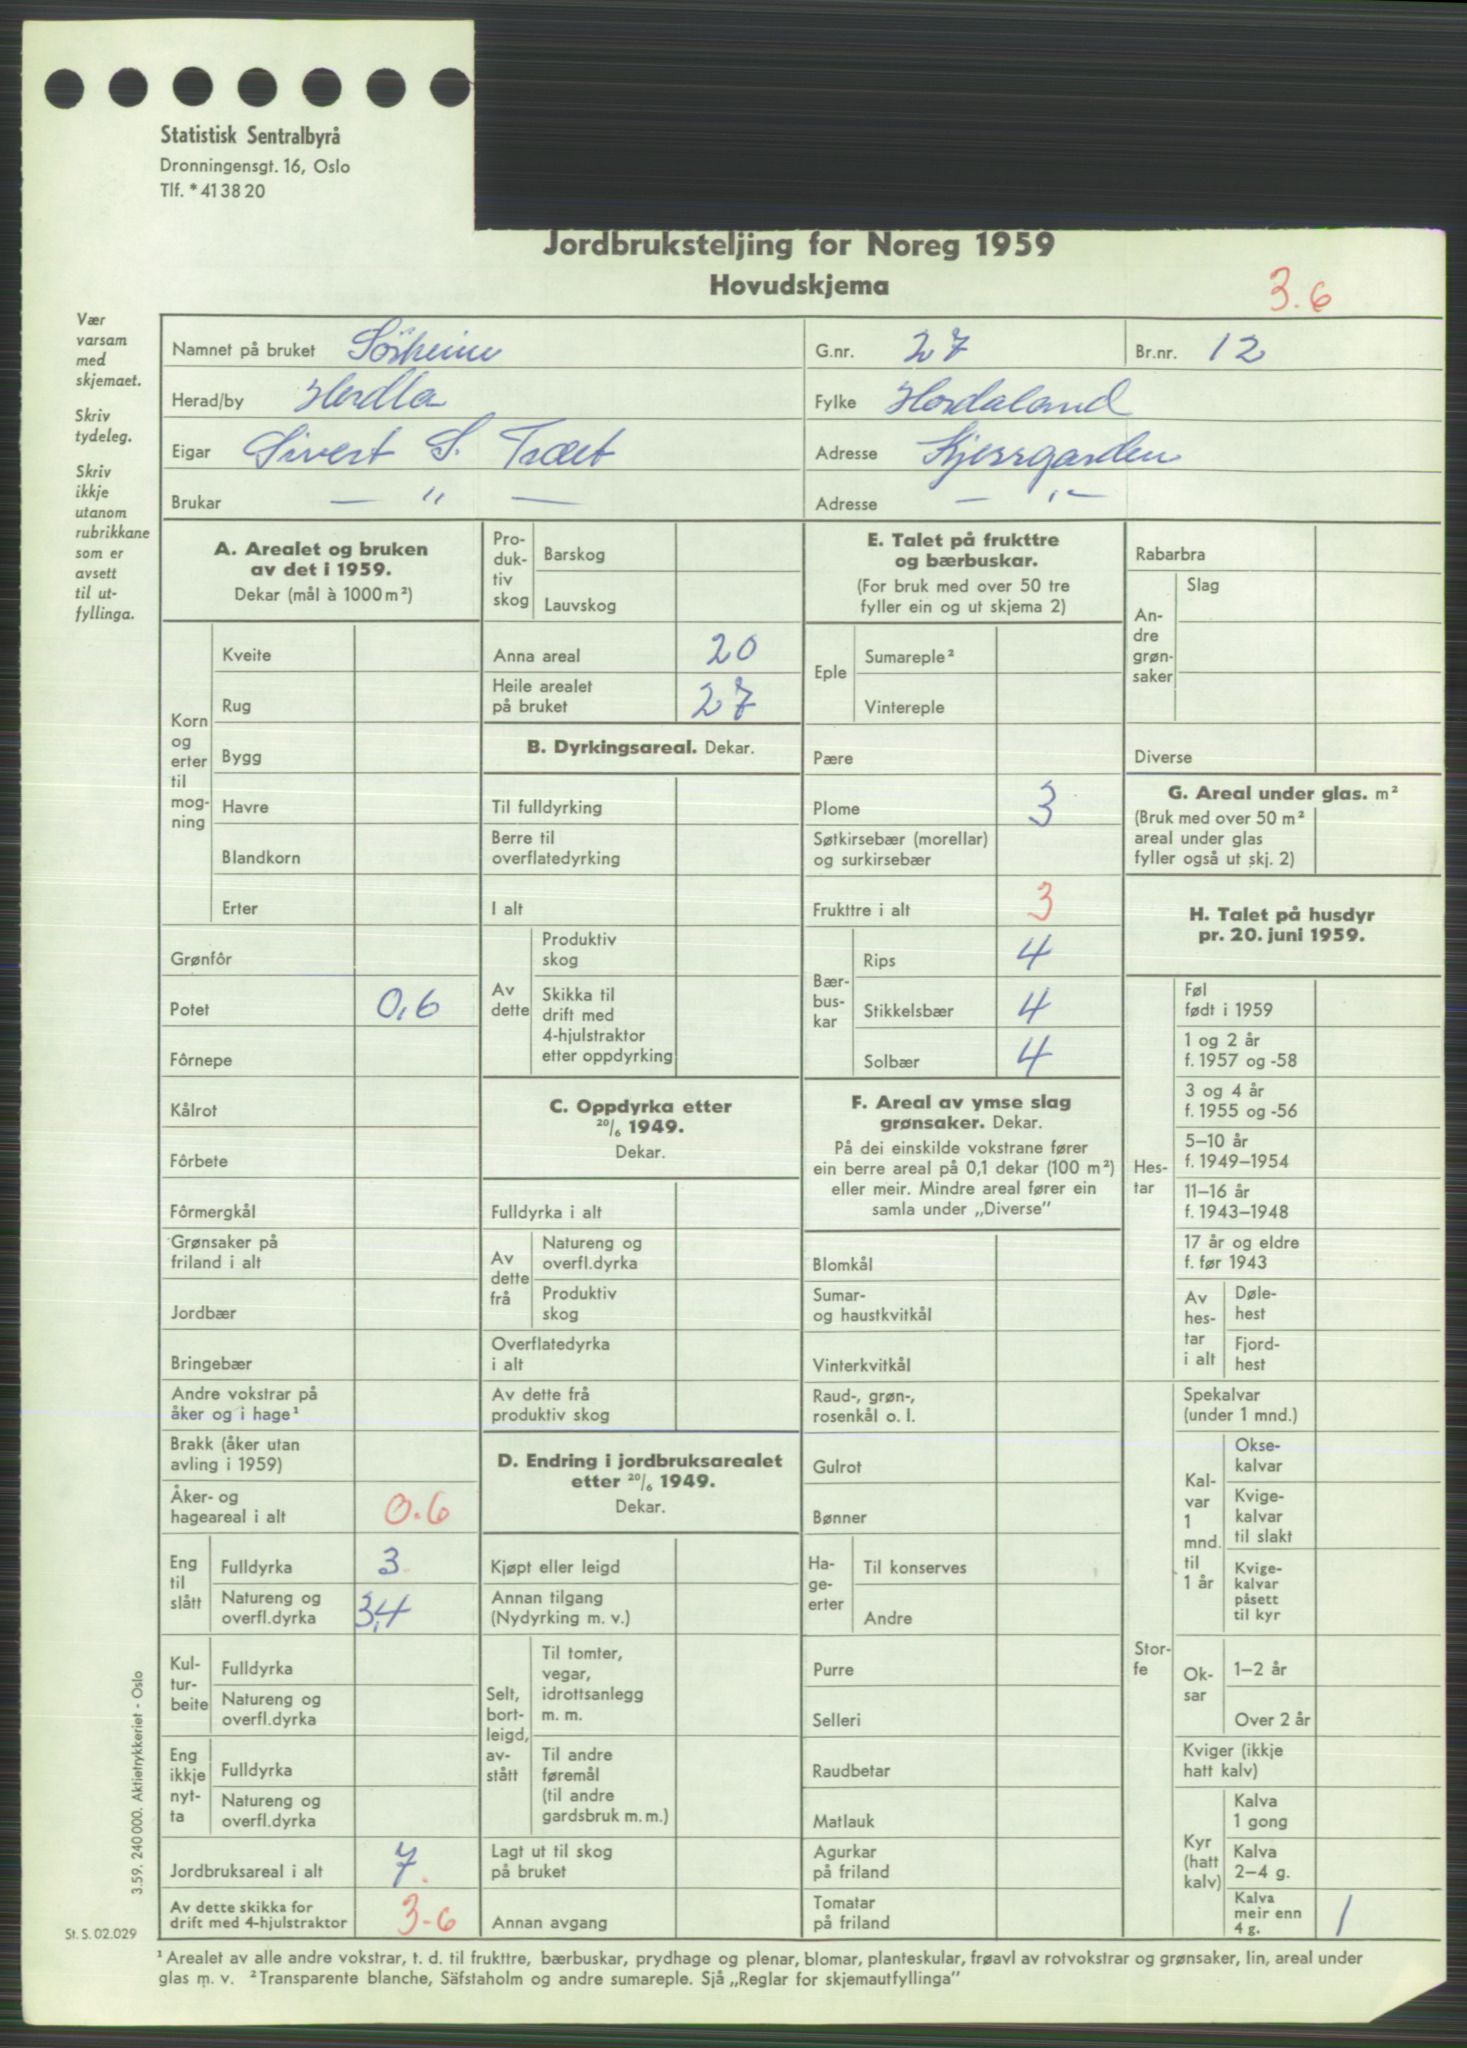 Statistisk Sentralbyrå
Dronningensgt. 16, Oslo
Tlf. *41 38 20
Jordbruksteljing for Noreg 1959
Hovudskjema
3.6
Vær
varsam
med
skjemaet.
Skriv
tydeleg.
Skriv
ikkje
utanom
rubrikkane
som er
avsett
til ut-
fyllinga.
Namnet på bruket Sörheim
G.nr. 27
Br.nr. 12
Herad/by Herdla
Fylke Hordaland
Eigar Sivert S. Træet
Adresse Kjerrgarden
Brukar — " —
Adresse — " —
A. Arealet og bruken
av det i 1959.
Dekar (mål à 1000 m²)
Korn
og
erter
til
mog-
ning
Kveite
Rug
Bygg
Havre
Blandkorn
Erter
Grønfôr
Potet 0,6
Fôrnepe
Kålrot
Fôrbete
Fôrmergkål
Grønsaker på
friland i alt
Jordbær
Bringebær
Andre vokstrar på
åker og i hage¹
Brakk (åker utan
avling i 1959)
Åker- og
hageareal i alt 0.6
Eng
til
slått
Fulldyrka 3
Natureng og
overfl.dyrka 3,4
Kul-
tur-
beite
Fulldyrka
Natureng og
overfl.dyrka
Eng
ikkje
nyt-
ta
Fulldyrka
Natureng og
overfl.dyrka
Jordbruksareal i alt 7.
Av dette skikka for
drift med 4-hjulstraktor 3.6
Pro-
duk-
tiv
skog
Barskog
Lauvskog
Anna areal 20
Heile arealet
på bruket 27
B. Dyrkingsareal. Dekar.
Til fulldyrking
Berre til
overflatedyrking
I alt
Av
dette
Produktiv
skog
Skikka til
drift med
4-hjulstraktor
etter oppdyrking
C. Oppdyrka etter
20/6 1949.
Dekar.
Fulldyrka i alt
Av
dette
frå
Natureng og
overfl.dyrka
Produktiv
skog
Overflatedyrka
i alt
Av dette frå
produktiv skog
D. Endring i jordbruksarealet
etter 20/6 1949.
Dekar.
Kjøpt eller leigd
Annan tilgang
(Nydyrking m. v.)
Selt,
bort-
leigd,
av-
stått
Til tomter,
vegar,
idrottsanlegg
m. m.
Til andre
føremål
(til andre
gardsbruk m. m.)
Lagt ut til skog
på bruket
Annan avgang
E. Talet på frukttre
og bærbuskar.
(For bruk med over 50 tre
fyller ein og ut skjema 2)
Eple
Sumareple²
Vintereple
Pære
Plome 3
Søtkirsebær (morellar)
og surkirsebær
Frukttre i alt 3
Bær-
bus-
kar
Rips 4
Stikkelsbær 4
Solbær 4
F. Areal av ymse slag
grønsaker. Dekar.
På dei einskilde vokstrane fører
ein berre areal på 0,1 dekar (100 m²)
eller meir. Mindre areal fører ein
samla under „Diverse”
Blomkål
Sumar-
og haustkvitkål
Vinterkvitkål
Raud-, grøn-,
rosenkål o. l.
Gulrot
Bønner
Ha-
ge-
erter
Til konserves
Andre
Purre
Selleri
Raudbetar
Matlauk
Agurkar
på friland
Tomatar
på friland
Rabarbra
An-
dre
grøn-
saker
Slag
Diverse
G. Areal under glas. m²
(Bruk med over 50 m²
areal under glas
fyller også ut skj. 2)
H. Talet på husdyr
pr. 20. juni 1959.
Hes-
tar
Føl
født i 1959
1 og 2 år
f. 1957 og -58
3 og 4 år
f. 1955 og -56
5–10 år
f. 1949–1954
11–16 år
f. 1943–1948
17 år og eldre
f. før 1943
Av
hes-
tar
i alt
Døle-
hest
Fjord-
hest
Stor-
fe
Spekalvar
(under 1 mnd.)
Kal-
var
1
mnd.
til
1 år
Okse-
kalvar
Kvige-
kalvar
til slakt
Kvige-
kalvar
påsett
til kyr
Ok-
sar
1–2 år
Over 2 år
Kviger (ikkje
hatt kalv)
Kyr
(hatt
kalv)
Kalva
1 gong
Kalva
2–4 g.
Kalva
meir enn
4 g. 1
3.59. 240 000. Aktietrykkeriet - Oslo
St. S. 02.029
¹ Arealet av alle andre vokstrar, t. d. til frukttre, bærbuskar, prydhage og plenar, blomar, planteskular, frøavl av rotvokstrar og grønsaker, lin, areal under
glas m. v. ² Transparente blanche, Säfstaholm og andre sumareple. Sjå „Reglar for skjemautfyllinga”